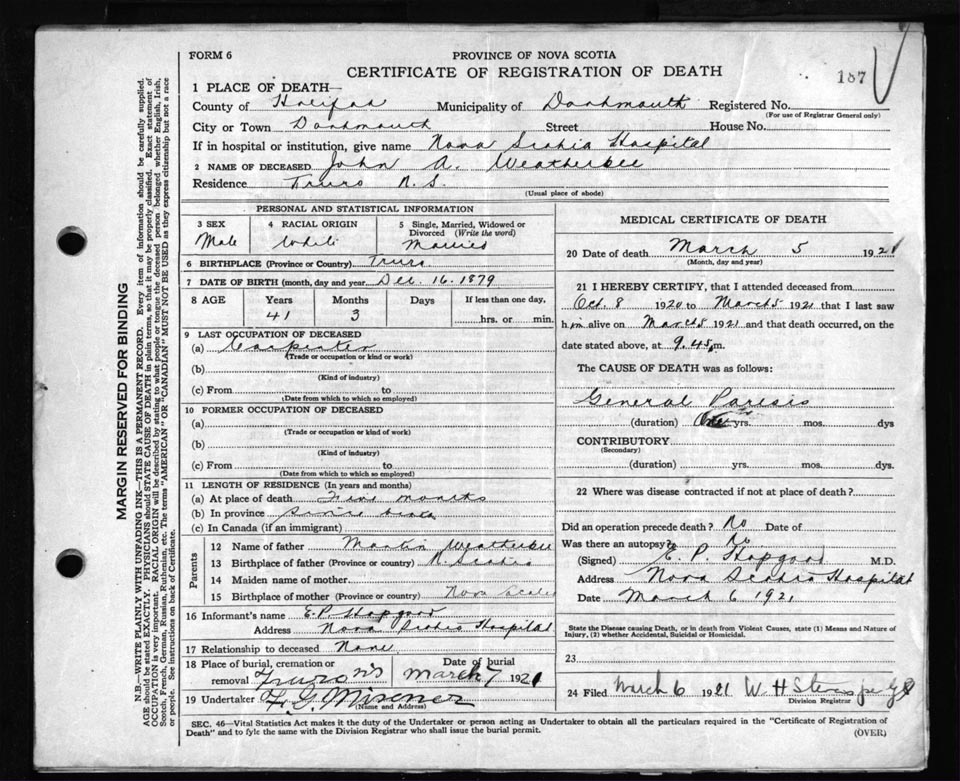 FORM 6
PROVINCE OF NOVA SCOTIA
CERTIFICATE OF REGISTRATION OF DEATH
187
1 PLACE OF DEATH—
County of Halifax Municipality of Dartmouth Registered No.
(For use of Registrar General only)
City or Town Dartmouth Street House No.
If in hospital or institution, give name Nova Scotia Hospital
2 NAME OF DECEASED John A. Weatherbee
Residence Truro N.S.
(Usual place of abode)
PERSONAL AND STATISTICAL INFORMATION
3 SEX
Male
4 RACIAL ORIGIN
White
5 Single, Married, Widowed or Divorced (Write the word)
Married
6 BIRTHPLACE (Province or Country) Truro.
7 DATE OF BIRTH (month, day and year) Dec. 16. 1879
8 AGE Years Months Days If less than one day,
41 3 hrs. or min.
9 LAST OCCUPATION OF DECEASED
(a) Carpenter
(Trade or occupation or kind or work)
(b)
(Kind of industry)
(c) From to
(Date from which to which so employed)
10 FORMER OCCUPATION OF DECEASED
(a)
(Trade or occupation or kind of work)
(b)
(Kind of industry)
(c) From to
(Date from which to which so employed)
11 LENGTH OF RESIDENCE (In years and months)
(a) At place of death months
(b) In province since birth
(c) In Canada (if an immigrant)
Parents
12 Name of father Martin Weatherbee
13 Birthplace of father (Province or country) N. Scotia
14 Maiden name of mother
15 Birthplace of mother (Province or country) Nova Scotia
16 Informant's name E.P. Hopgood
Address Nova Scotia Hospital
17 Relationship to deceased None
18 Place of burial, cremation or removal Truro NS
Date of burial March 7 1921
19 Undertaker F. G. Misener
(Name and Address)
MEDICAL CERTIFICATE OF DEATH
20 Date of death March 5 1921
(Month, day and year)
21 I HEREBY CERTIFY, that I attended deceased from
Oct. 8 1920 to March 5 1921 that I last saw
him alive on March 5 1921 and that death occurred, on the
date stated above, at 9.45 m.
The CAUSE OF DEATH was as follows:
General Paresis
(duration) One yrs. mos. dys
CONTRIBUTORY
(Secondary)
(duration) yrs. mos. dys.
22 Where was disease contracted if not at place of death?
Did an operation precede death? No Date of
Was there an autopsy? No
(Signed) E. P. Hopgood M.D.
Address Nova Scotia Hospital
Date March 6 1921
State the Disease causing Death, or in death from Violent Causes, state (1) Means and Nature of
Injury, (2) whether Accidental, Suicidal or Homicidal.
23
24 Filed March 6 1921 W. H
Division Registrar
SEC. 46—Vital Statistics Act makes it the duty of the Undertaker or person acting as Undertaker to obtain all the particulars required in the "Certificate of Registration of
Death" and to fyle the same with the Division Registrar who shall issue the burial permit.
(OVER)
MARGIN RESERVED FOR BINDING
N.B.—WRITE PLAINLY WITH UNFADING INK—THIS IS A PERMANENT RECORD. Every item of information should be carefully supplied.
AGE should be stated EXACTLY. PHYSICIANS should STATE CAUSE OF DEATH in plain terms, so that it may be properly classified. Exact statement of
OCCUPATION is very important. RACIAL ORIGIN will be described by stating to what people or tongue the deceased person belonged whether English, Irish,
Scotch, French, German, Russian, Ruthenian, etc. The terms "AMERICAN" OR "CANADIAN" MUST NOT BE USED as they express citizenship but not a race
or people. See instructions on back of Certificate.